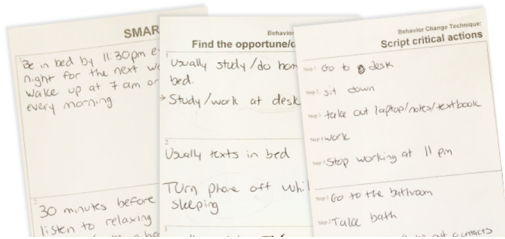 SMAR
Be in bed by 11:30pm e
night for the next w
wake up at 7 am o
every morning
30 minutes before
listen to relaxing
Behavior
Find the opportune/d
Usually study/do hom
bed.
→ Study/work at desk
Usually texts in bed
Turn phone off whi
sleeping
Behavior Change Technique:
Script critical actions
Step 1 Go to desk
Step 2 sit down
Step 3 take out laptop/notes/textbook
Step 4 work
Step 5 Stop working at 11 pm
Step 1 Go to the bathroom
Step 2 Take bath
out contacts